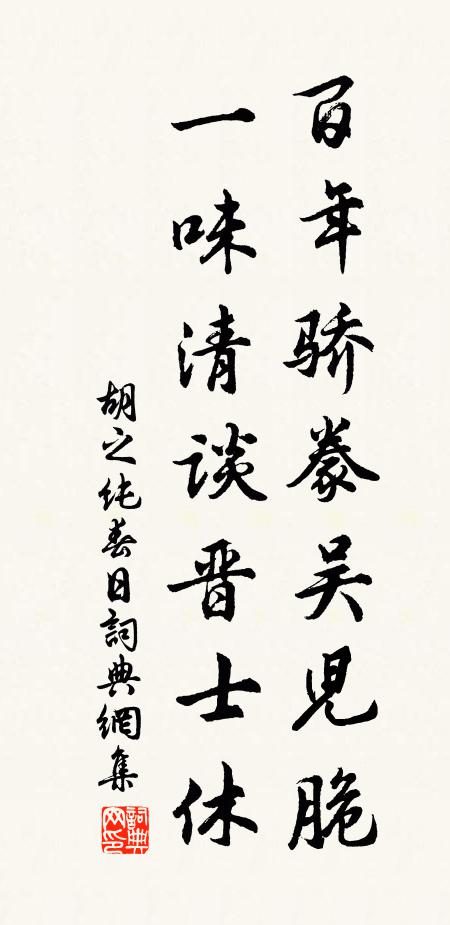 百年骄豢吴児脆
一味清談晋士休
胡之纯春日詞典網集
詞典网印